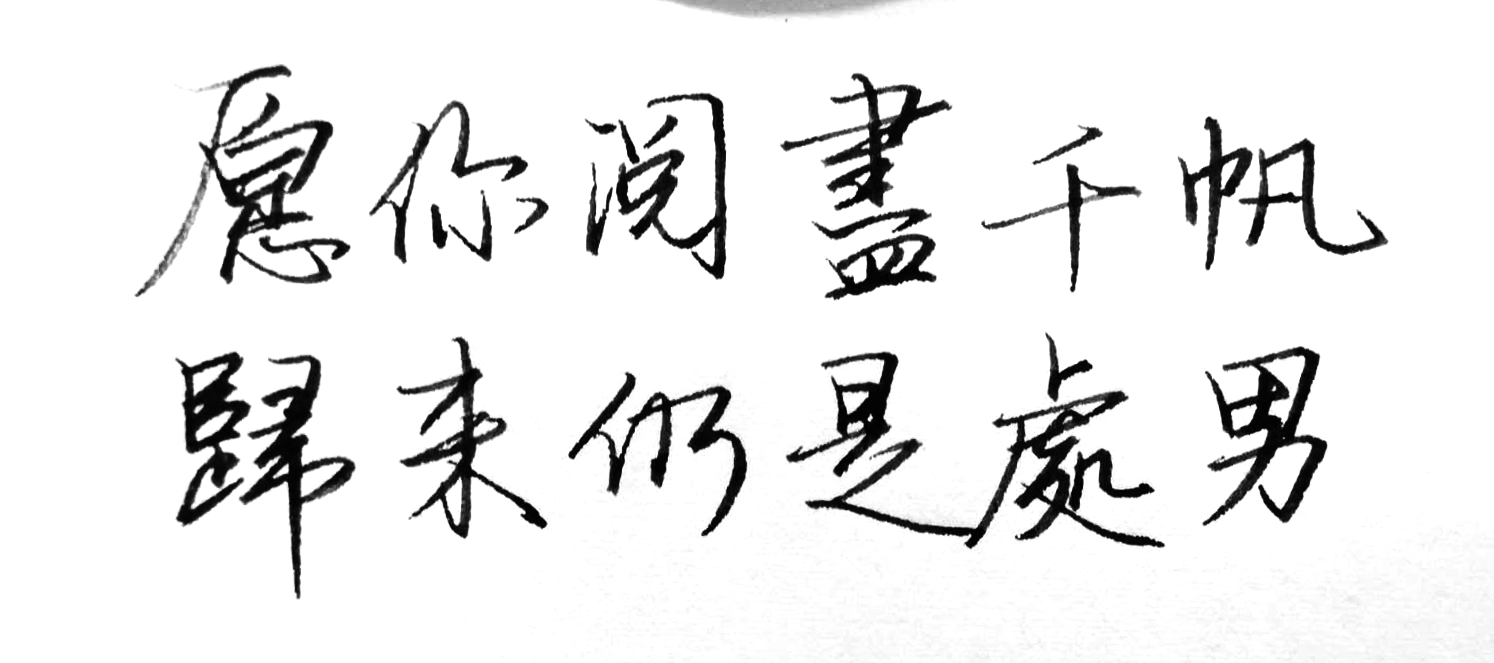 愿你阅盡千帆
歸来仍是處男